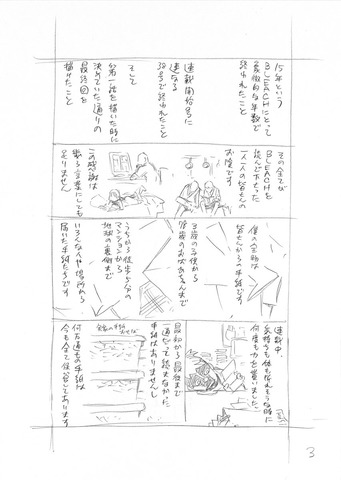 15年という
BLEACHにとって
象徴的な年数で
終われたこと
連載開始号に
連なる
38号で終われたこと
そして
第一話を描いた時に
決めていた通りの
最終回を
描けたこと
その全てが
BLEACHを
読んで下さった
一人一人の皆さんの
お陰です
この感謝は
どんな言葉にしても
足りません
僕の宝物は
皆さんからの手紙です
3歳の子供から
78歳のおばあちゃんまで
うちから徒歩5分の
マンションから
地球の裏側まで
いろんな人や場所から
届いた手紙たちです
連載中、
気持ちも体も折れそうな時に
何度も力を貰いました
最初から最後まで
一通だって読まなかった
手紙はありませんし
何万通もの手紙は
今も全て保管してあります
3